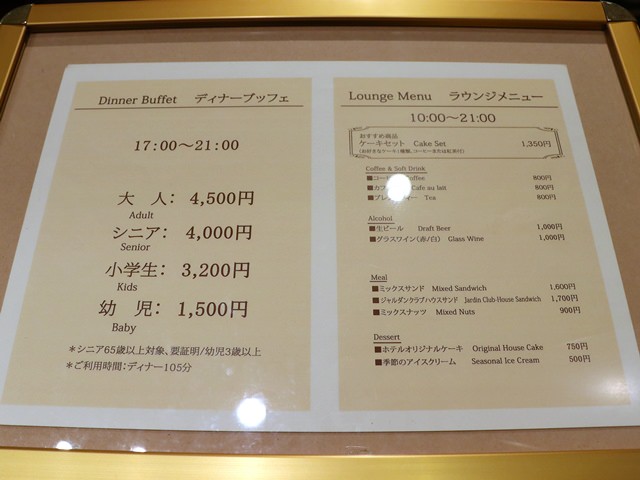 Dinner Buffet ディナーブッフェ
17:00～21:00
大 人： 4,500円
Adult
シニア： 4,000円
Senior
小学生： 3,200円
Kids
幼 児： 1,500円
Baby
＊シニア65歳以上対象、要証明/幼児3歳以上
＊ご利用時間：ディナー105分
Lounge Menu ラウンジメニュー
10:00～21:00
おすすめ商品
ケーキセット Cake Set 1,350円
(お好きなケーキ1種類、コーヒーまたは紅茶付)
Coffee & Soft Drink
■コー Coffee 800円
■カフ Cafe au lait 800円
■ブレ ィー Tea 800円
Alcohol
■生ビール Draft Beer 1,000円
■グラスワイン(赤/白) Glass Wine 1,000円
Meal
■ミックスサンド Mixed Sandwich 1,600円
■ジャルダンクラブハウスサンド Jardin Club House Sandwich 1,700円
■ミックスナッツ Mixed Nuts 900円
Dessert
■ホテルオリジナルケーキ Original House Cake 750円
■季節のアイスクリーム Seasonal Ice Cream 500円